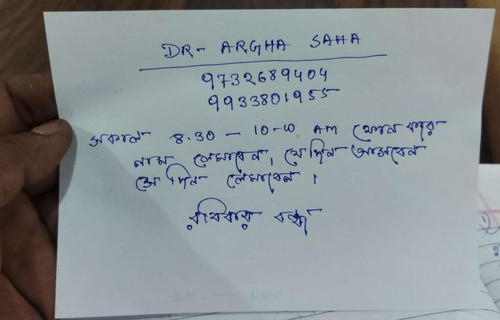 DR- ARGHA SAHA
9732689404
9933801955
সকাল 8.30 - 10-00 AM ফোন করে
নাম লেখাবেন, যে দিন আসবেন
সে দিন লেখাবেন।
রবিবার বন্ধ